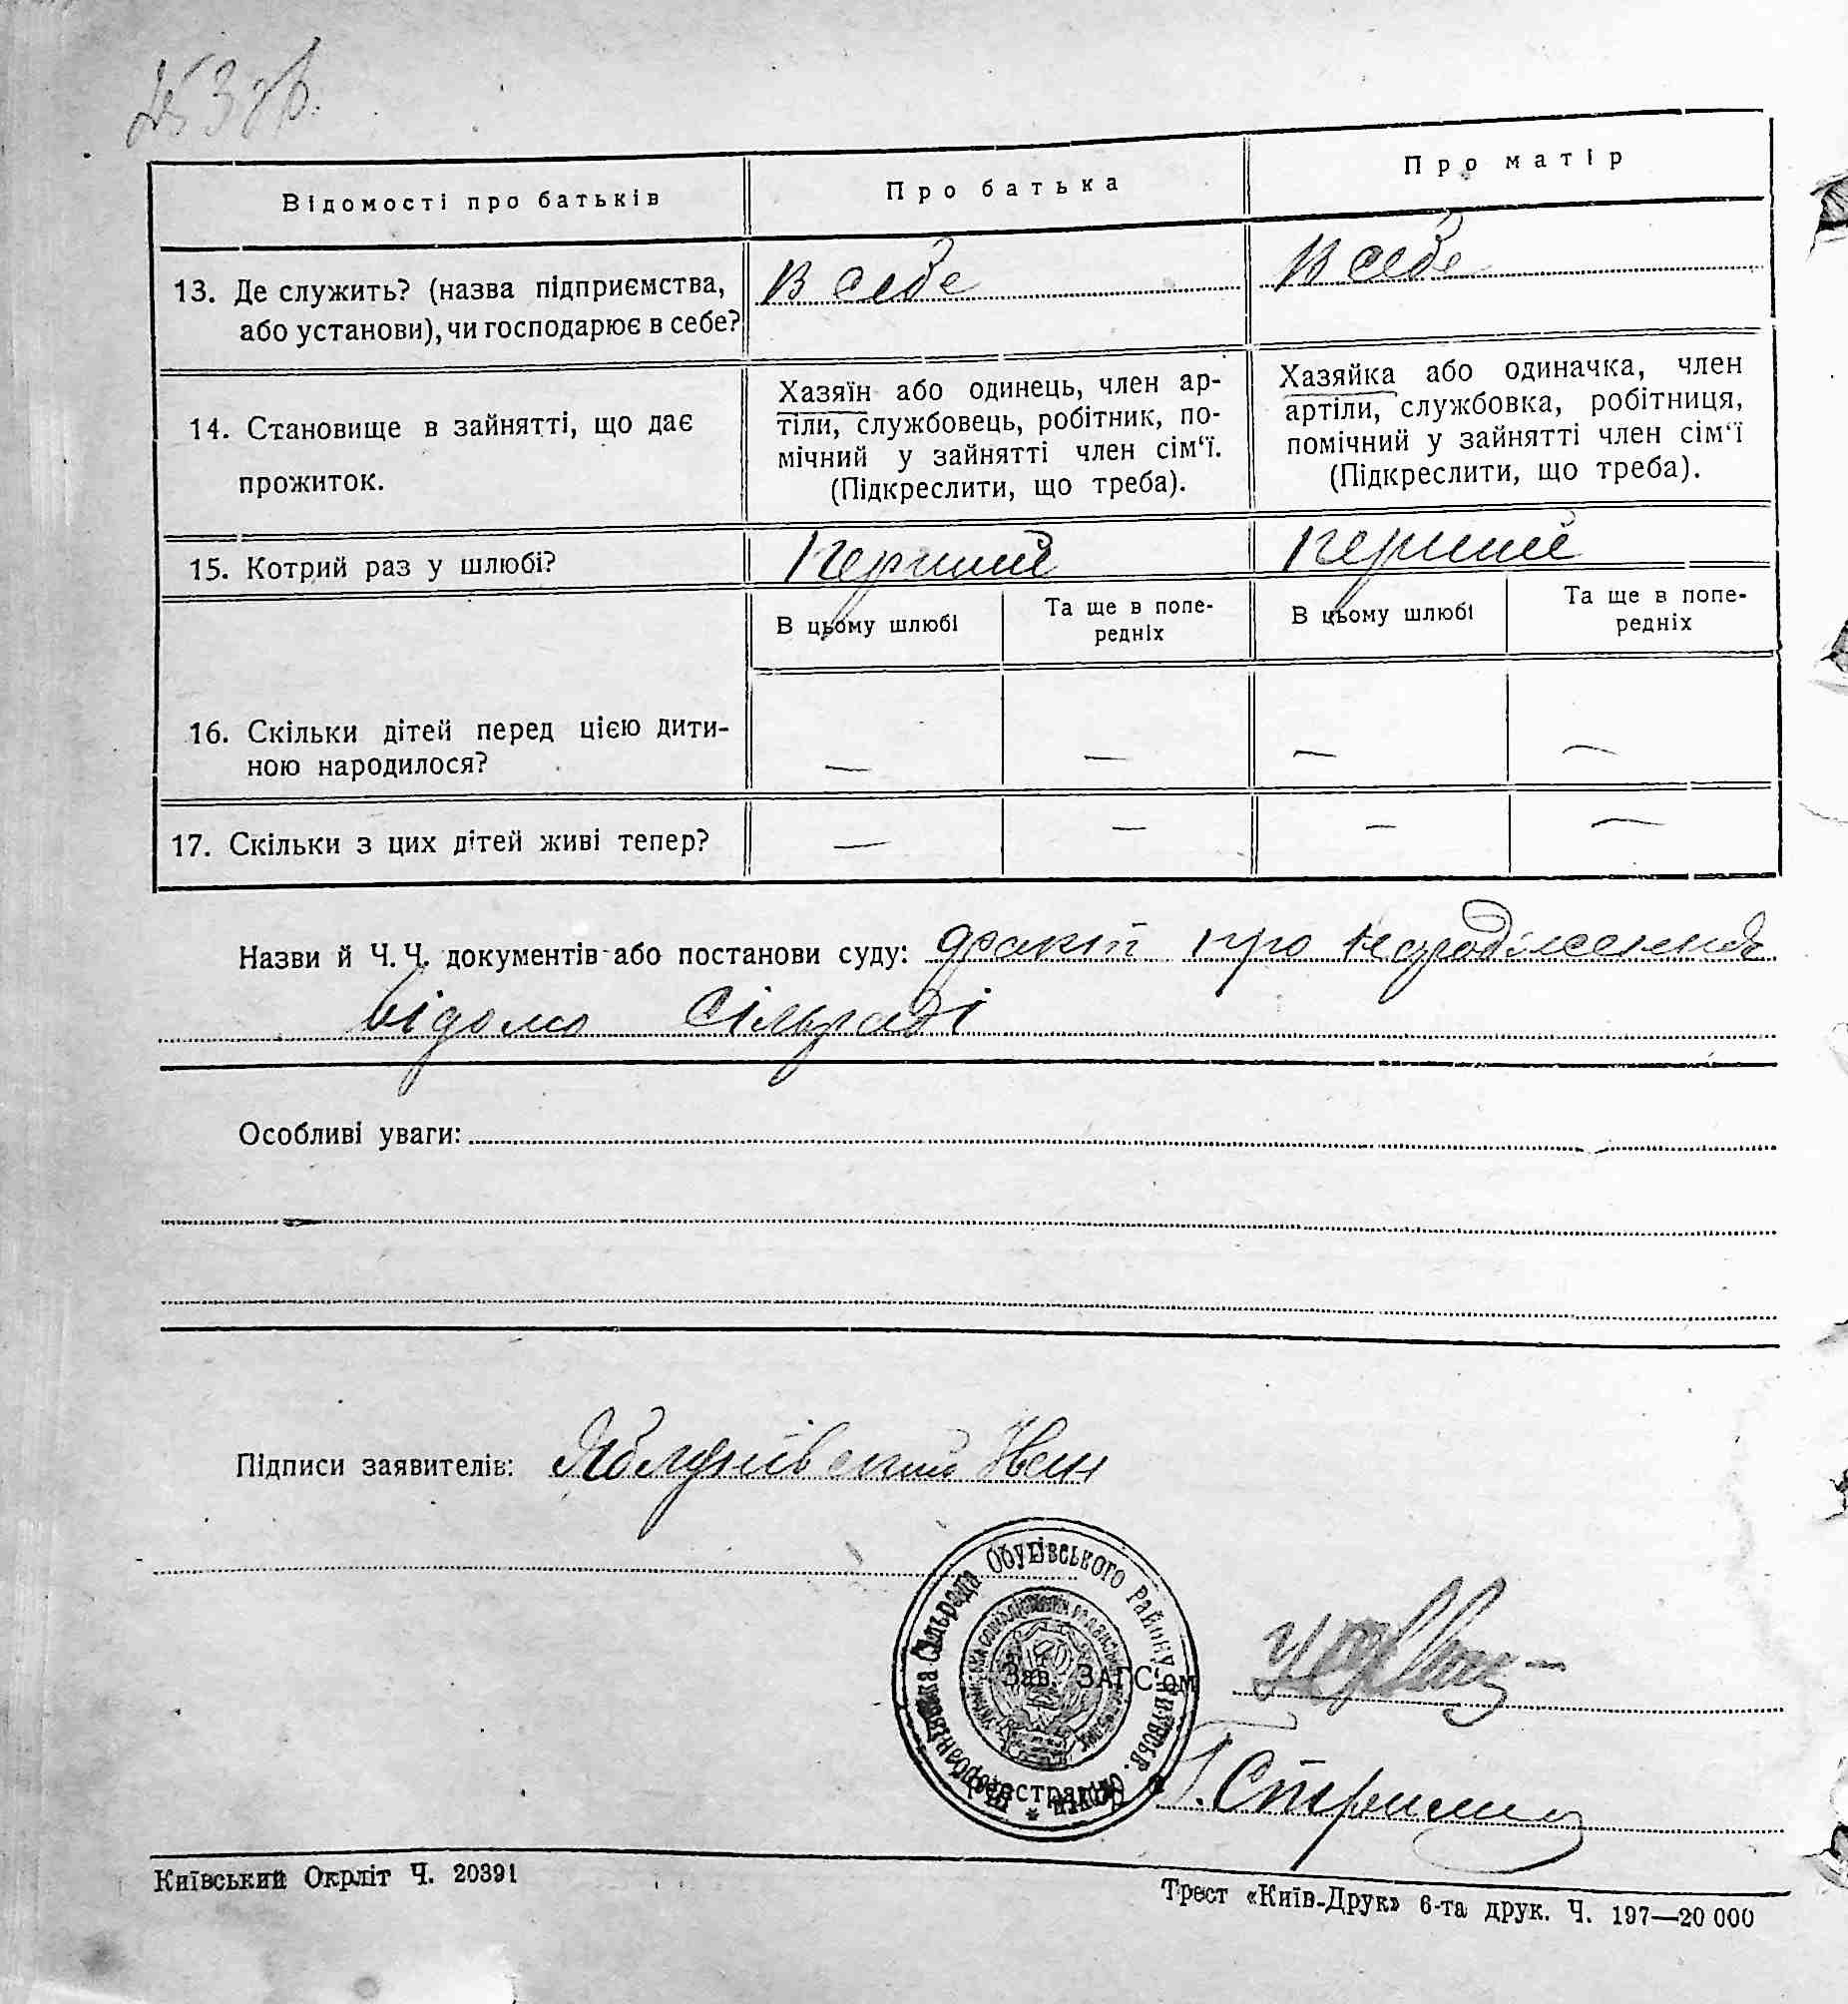 № 3 зв.
Відомості про батьків
Про батька
Про матір
13. Де служить? (назва підприємства,
або установи), чи господарює в себе?
В себе
В себе
14. Становище в зайнятті, що дає
прожиток.
Хазяїн або одинець, член ар-
тіли, службовець, робітник, по-
мічний у зайнятті член сім‘ї.
(Підкреслити, що треба).
Хазяйка або одиначка, член
артіли, службовка, робітниця,
помічний у зайнятті член сім‘ї
(Підкреслити, що треба).
15. Котрий раз у шлюбі?
перший
перший
В цьому шлюбі
Та ще в попе-
редніх
В цьому шлюбі
Та ще в попе-
редніх
16. Скільки дітей перед цією дити-
ною народилося?
— — — —
17. Скільки з цих дітей живі тепер?
— — — —
Назви й Ч. Ч. документів або постанови суду: факт про народження
відомо Сільраді
Особливі уваги:
Підписи заявителів: Яблунівский
Сільрада Обухівського району
Зав. ЗАГС-ом
Київський Окрліт Ч. 20391
Трест «Київ-Друк» 6-та друк. Ч. 197—20 000